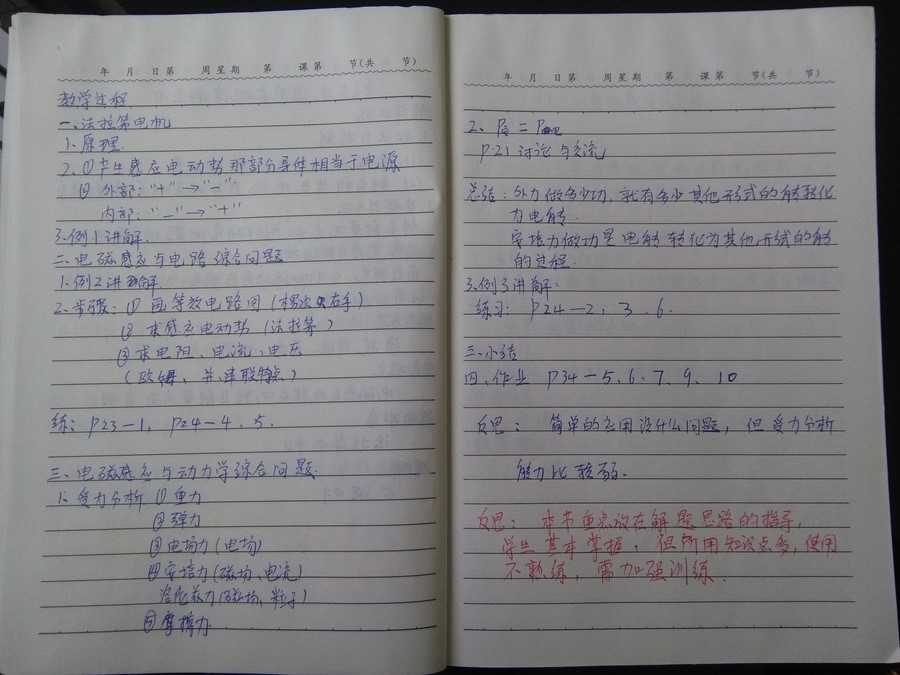 年 月 日 第 周 星 期 第 课 第 节(共 节)
教学过程
一、法拉第电机
1、原理
2、①产生感应电动势那部分导体相当于电源
② 外部："+"→"-"
内部："-"→"+"
3、例1讲解
二、电磁感应与电路综合问题
1、例2讲解
2、步骤：① 画等效电路图(右手)
② 求感应电动势(法拉第)
③ 求电阻、电流、电压
(欧姆、并、串联特点)
练：P23-1，P24-4、5.
三、电磁感应与动力学综合问题
1、受力分析 ①重力
②弹力
③电场力(电场)
④安培力(磁场、电流)
洛伦兹力(磁场、粒子)
⑤摩擦力
年 月 日 第 周 星 期 第 课 第 节(共 节)
2、
P21 讨论与交流
总结：外力做多少功，就有多少其他形式的能转化
为电能.
安培力做功是电能转化为其他形式的能
的过程.
3、例3讲解
练习：P24-2，3、6.
三、小结
四、作业 P34-5、6、7、9、10
反思：简单的应用没什么问题，但受力分析
能力比较弱.
反思：本节重点放在解题思路的指导，
学生基本掌握，但所用知识点多，使用
不熟练，需加强训练.